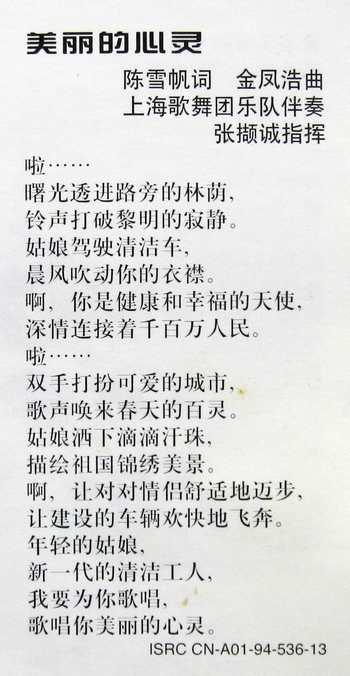 美丽的心灵
陈雪帆词　金凤浩曲
上海歌舞团乐队伴奏
张撷诚指挥
啦……
曙光透进路旁的林荫，
铃声打破黎明的寂静。
姑娘驾驶清洁车，
晨风吹动你的衣襟。
啊，你是健康和幸福的天使，
深情连接着千百万人民。
啦……
双手打扮可爱的城市，
歌声唤来春天的百灵。
姑娘洒下滴滴汗珠，
描绘祖国锦绣美景。
啊，让对对情侣舒适地迈步，
让建设的车辆欢快地飞奔。
年轻的姑娘，
新一代的清洁工人，
我要为你歌唱，
歌唱你美丽的心灵。
ISRC CN-A01-94-536-13